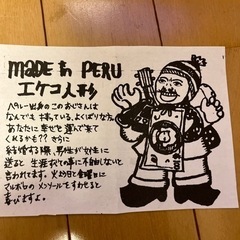 MADE in PERU
エケコ人形
ペルー出身のこのおじさんは
なんでも持っている、よくばりな方。
あなたに幸せを運んで来て
くれるかも?? さらに
結婚する際、男性が女性に
送ると生涯お金の事に不自由しないと
言われてます。火曜日と金曜日に
マルボロのメンソールをすわせると
喜びますよ。